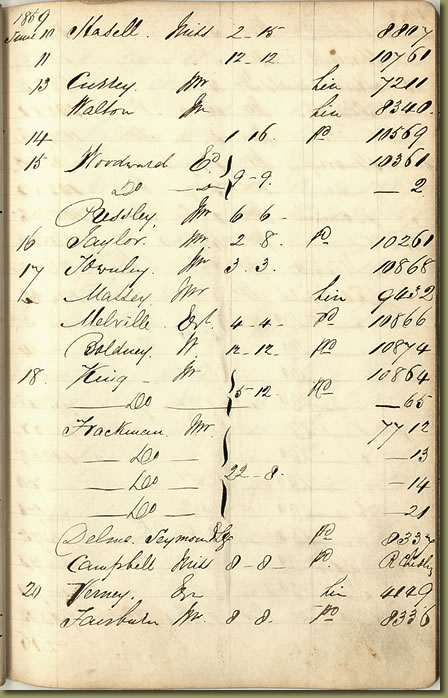 1859
June 10 Hasell. Miss 2 - 15 8807
11 12 - 12. 10761
13 Cursey Mr Lin 7211
Walton Mr Lin 8340.
14 1 16. Pd 10569
15 Woodward Ed 10361
Do 9 - 9. — 2
Pressley. Mr 6 6 -
16 Taylor. Mr 2 8. Pd 10261
17 Townley. Mr 3. 3. 10868
Massey. Mr Lin 9432
Melville Esq. 4 - 4 - Pd 10866
Boldney. W 12 - 12. Pd 10874
18. King Mr 10864
— Do — 5 - 12 Pd — 65
Frackman. Mr. 7712
— Do — — 13
— Do — 22 - 8. — 14
— Do — — 21
Delme Seymour Esq Pd
Campbell Miss 8 - 8 - Pd.
20 Verney. Esq Lin 4149
Fairburn Mr. 8 8. Pd 8336